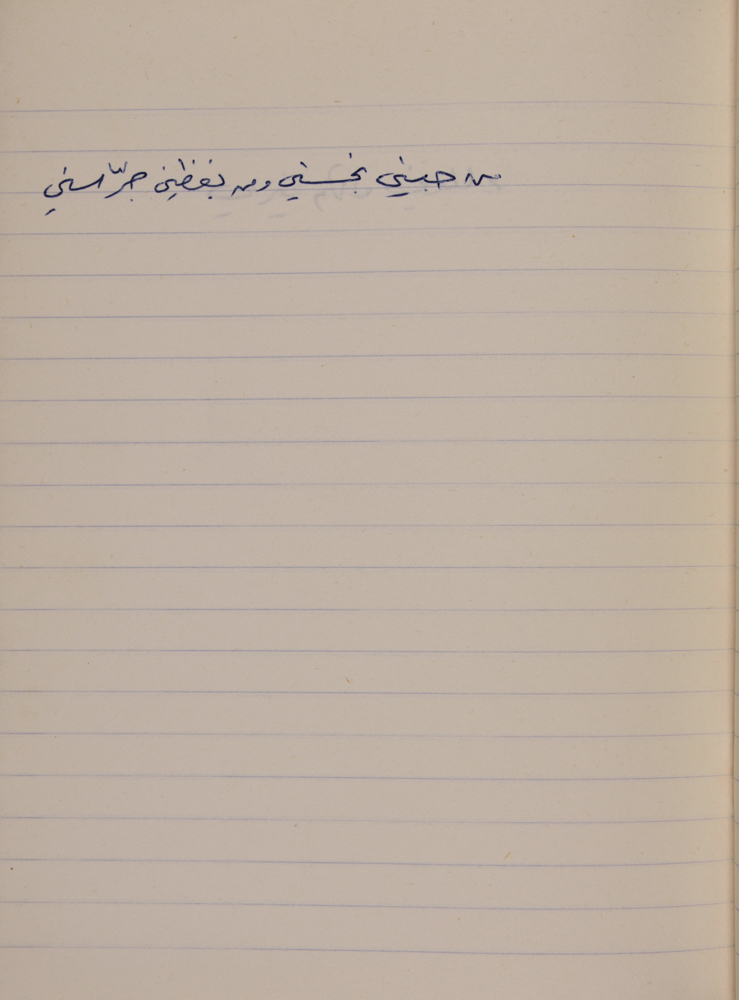 من حبني نخسني ومن بغضني جرّ اسني